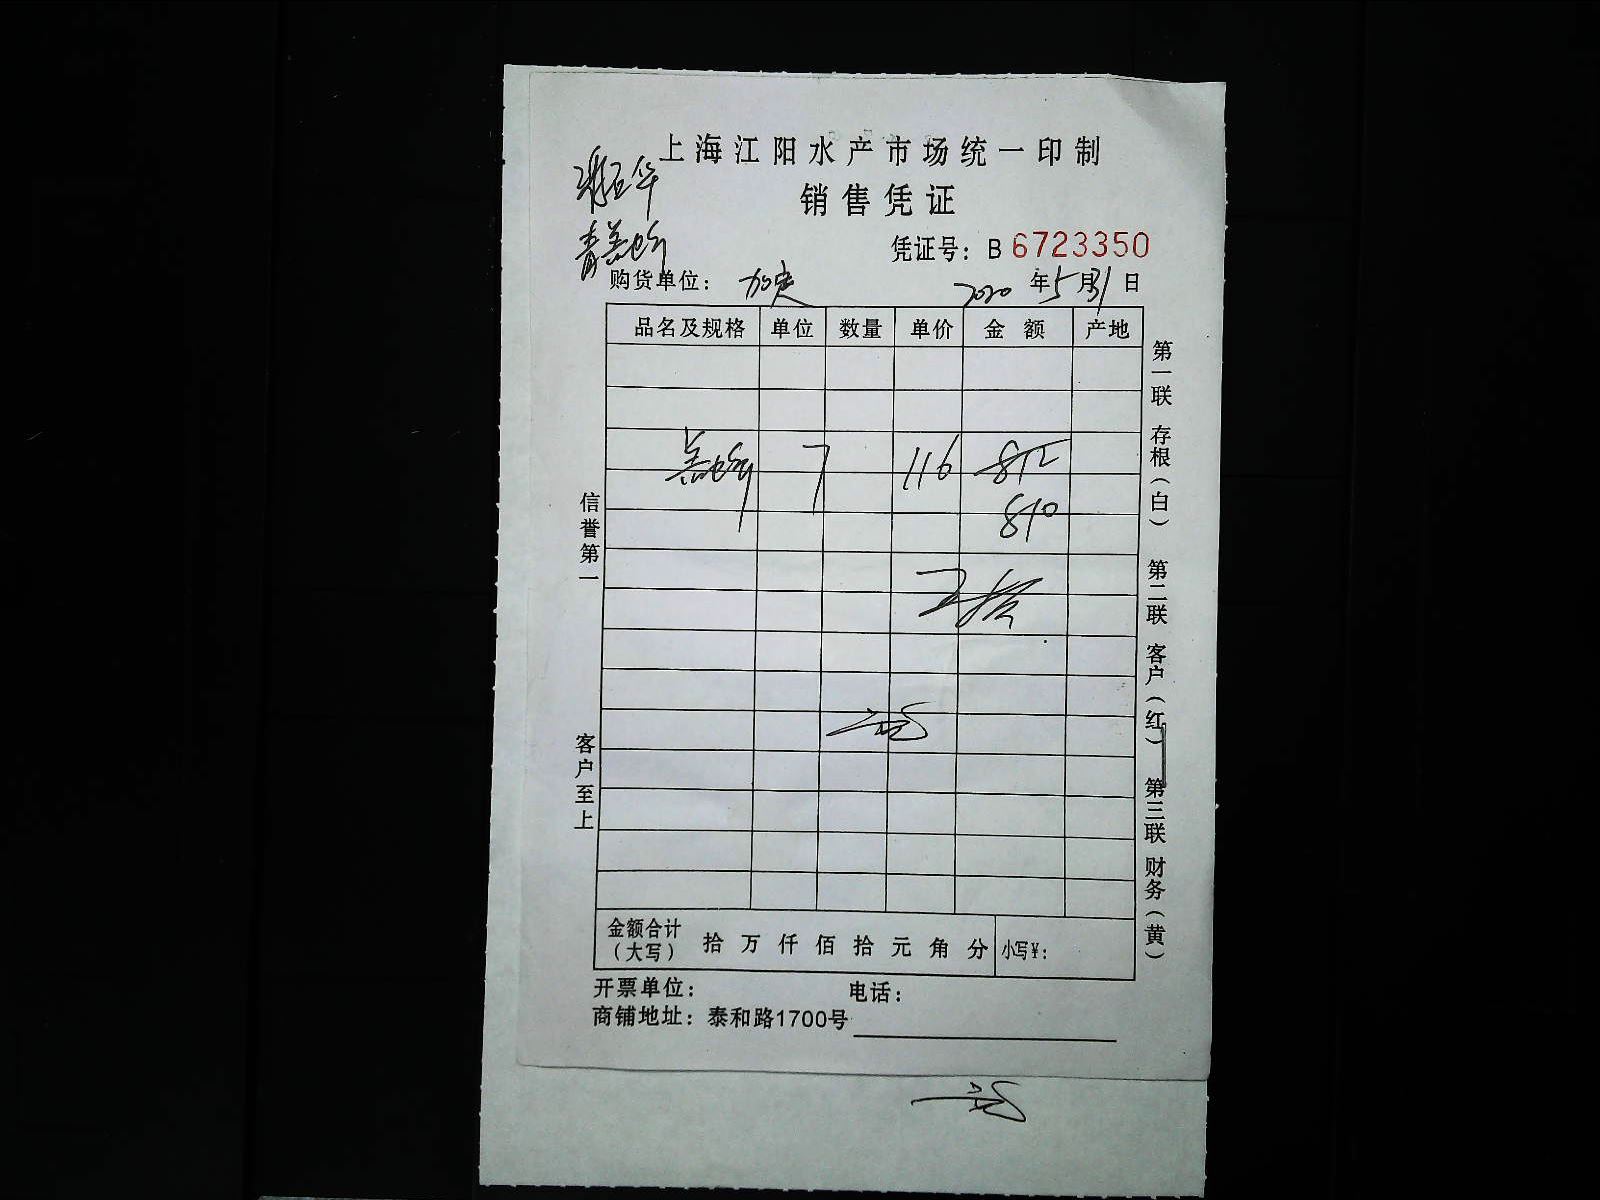 上海江阳水产市场统一印制
销售凭证
凭证号：B 6723350
购货单位： 2020年5月31日
品名及规格 单位 数量 单价 金额 产地
7 116 812
810
金额合计（大写） 拾万仟佰拾元角分 小写¥：
开票单位： 电话：
商铺地址：泰和路1700号
信誉第一
客户至上
第一联 存根（白）
第二联 客户（红）
第三联 财务（黄）